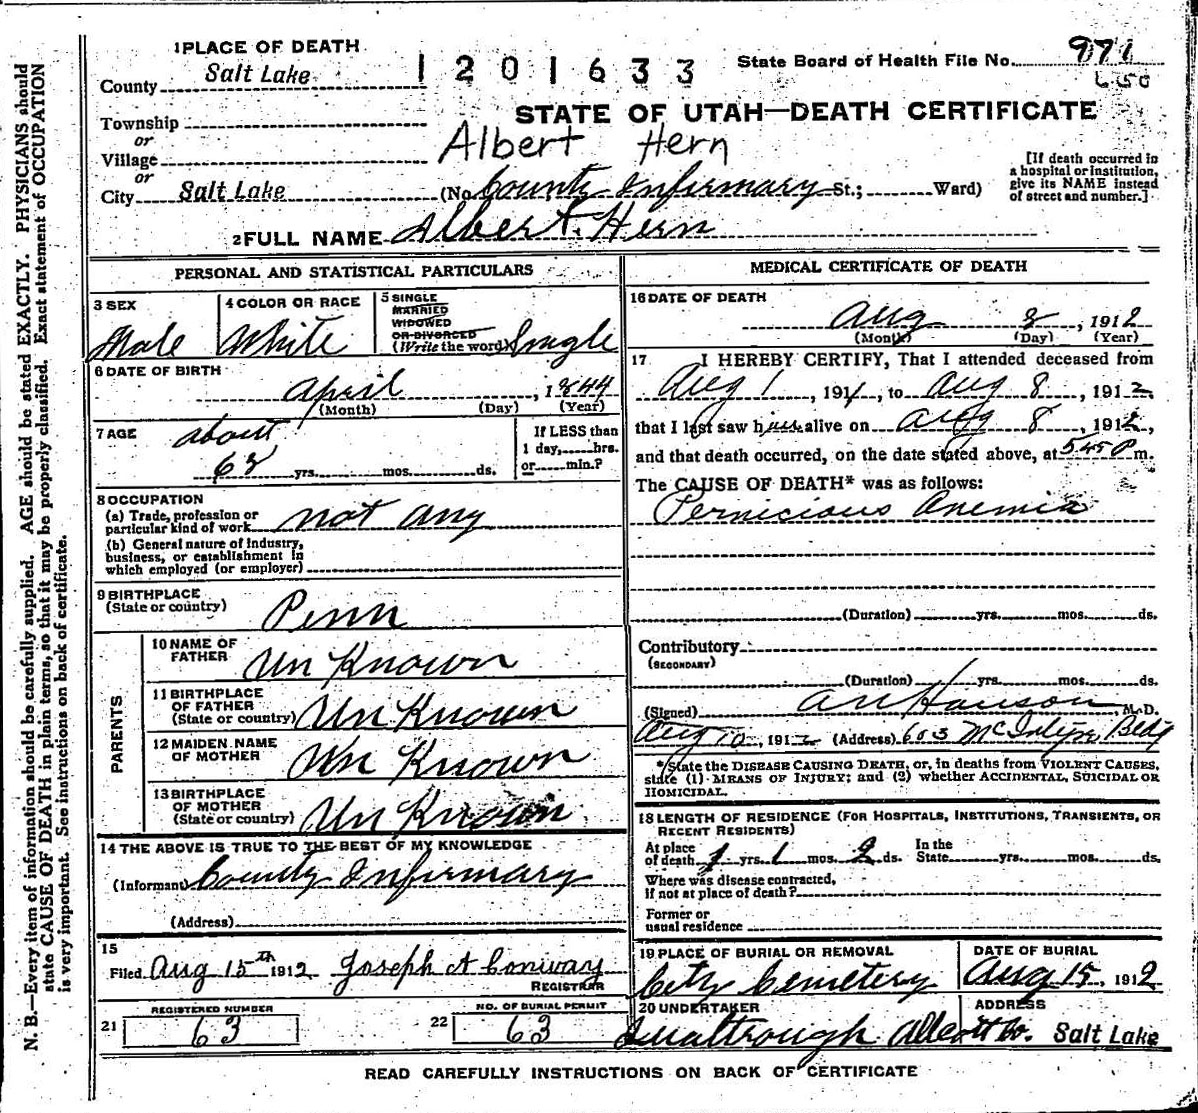 N. B.—Every item of information should be carefully supplied. AGE should be stated EXACTLY. PHYSICIANS should
state CAUSE OF DEATH in plain terms, so that it may be properly classified. Exact statement of OCCUPATION
is very important. See instructions on back of certificate.
1 PLACE OF DEATH
County Salt Lake
1201633
State Board of Health File No. 971
Township
STATE OF UTAH—DEATH CERTIFICATE
or
Village
Albert Hern
or
City Salt Lake (No. County Infirmary St.; Ward)
[If death occurred in
a hospital or institution,
give its NAME instead
of street and number.]
2 FULL NAME Albert Hern
PERSONAL AND STATISTICAL PARTICULARS
3 SEX
Male
4 COLOR OR RACE
White
5 SINGLE
MARRIED
WIDOWED
OR DIVORCED
(Write the word) Single
6 DATE OF BIRTH
April, 1844
(Month) (Day) (Year)
7 AGE
about
68 yrs. mos. ds.
If LESS than
1 day, hrs.
or min.?
8 OCCUPATION
(a) Trade, profession or
particular kind of work not any
(b) General nature of industry,
business, or establishment in
which employed (or employer)
9 BIRTHPLACE
(State or country) Penn
PARENTS
10 NAME OF
FATHER Un Known
11 BIRTHPLACE
OF FATHER
(State or country) Un Known
12 MAIDEN NAME
OF MOTHER Un Known
13 BIRTHPLACE
OF MOTHER
(State or country) Un Known
14 THE ABOVE IS TRUE TO THE BEST OF MY KNOWLEDGE
(Informant) County Infirmary
(Address)
15
Filed Aug 15th 1912 Joseph A Conway
REGISTRAR
REGISTERED NUMBER
21 63
NO. OF BURIAL PERMIT
22 63
MEDICAL CERTIFICATE OF DEATH
16 DATE OF DEATH
Aug 8, 1912
(Month) (Day) (Year)
17 I HEREBY CERTIFY, That I attended deceased from
Aug 1, 1911, to Aug 8, 1912
that I last saw him alive on Aug 8, 1912,
and that death occurred, on the date stated above, at 545 P m.
The CAUSE OF DEATH* was as follows:
Pernicious Anemia
(Duration) yrs. mos. ds.
Contributory
(SECONDARY)
(Duration) yrs. mos. ds.
(Signed) A N Hanson, M.D.
Aug 10, 1912 (Address) 603 McIntyre Bldg
*State the DISEASE CAUSING DEATH, or, in deaths from VIOLENT CAUSES,
state (1) MEANS OF INJURY; and (2) whether ACCIDENTAL, SUICIDAL OR
HOMICIDAL.
18 LENGTH OF RESIDENCE (FOR HOSPITALS, INSTITUTIONS, TRANSIENTS, OR
RECENT RESIDENTS)
At place
of death 1 yrs. 1 mos. 2 ds.
In the
State yrs. mos. ds.
Where was disease contracted,
If not at place of death?
Former or
usual residence
19 PLACE OF BURIAL OR REMOVAL
City Cemetery
DATE OF BURIAL
Aug 15, 1912
20 UNDERTAKER
ADDRESS
Salt Lake
READ CAREFULLY INSTRUCTIONS ON BACK OF CERTIFICATE